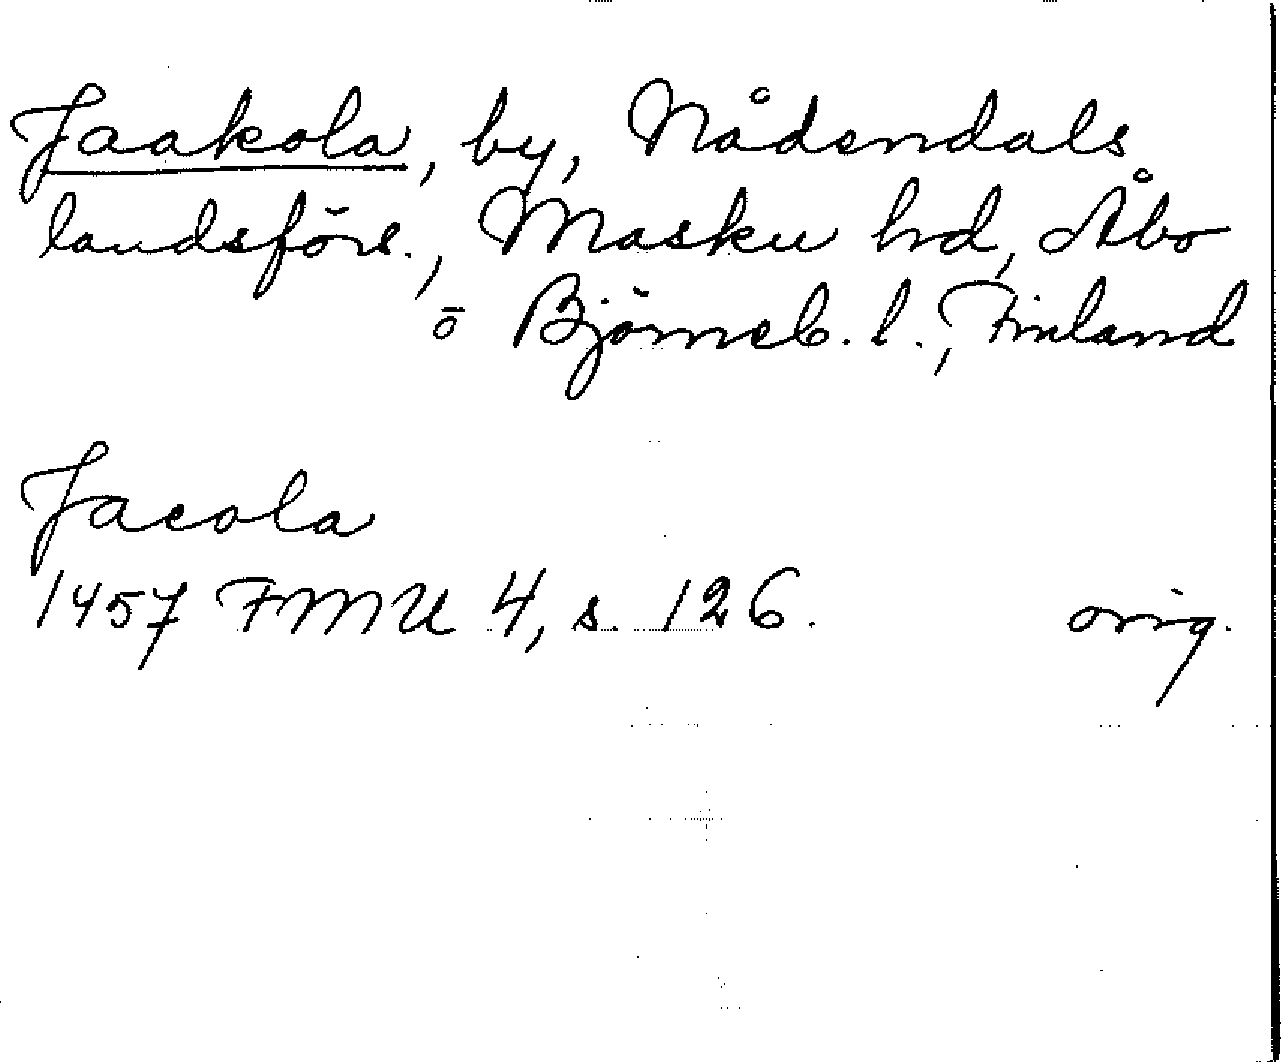 Jaakola, by, Nådendals
landsförs., Masku hd, Åbo
o Björneb. l., Finland
Jacola
1457 FMU 4, s. 126. orig.